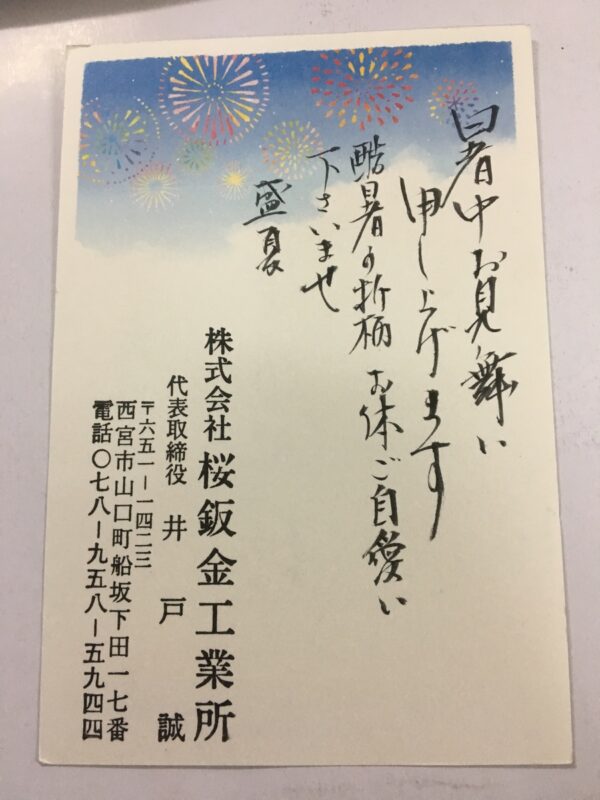 暑中お見舞い
申し上げます
酷暑の折柄 お体ご自愛い
下さいませ
盛夏
株式会社 桜鈑金工業所
代表取締役 井戸 誠
〒六五一－一四二三
西宮市山口町船坂下田一七番
電話〇七八－九五八－五九四四